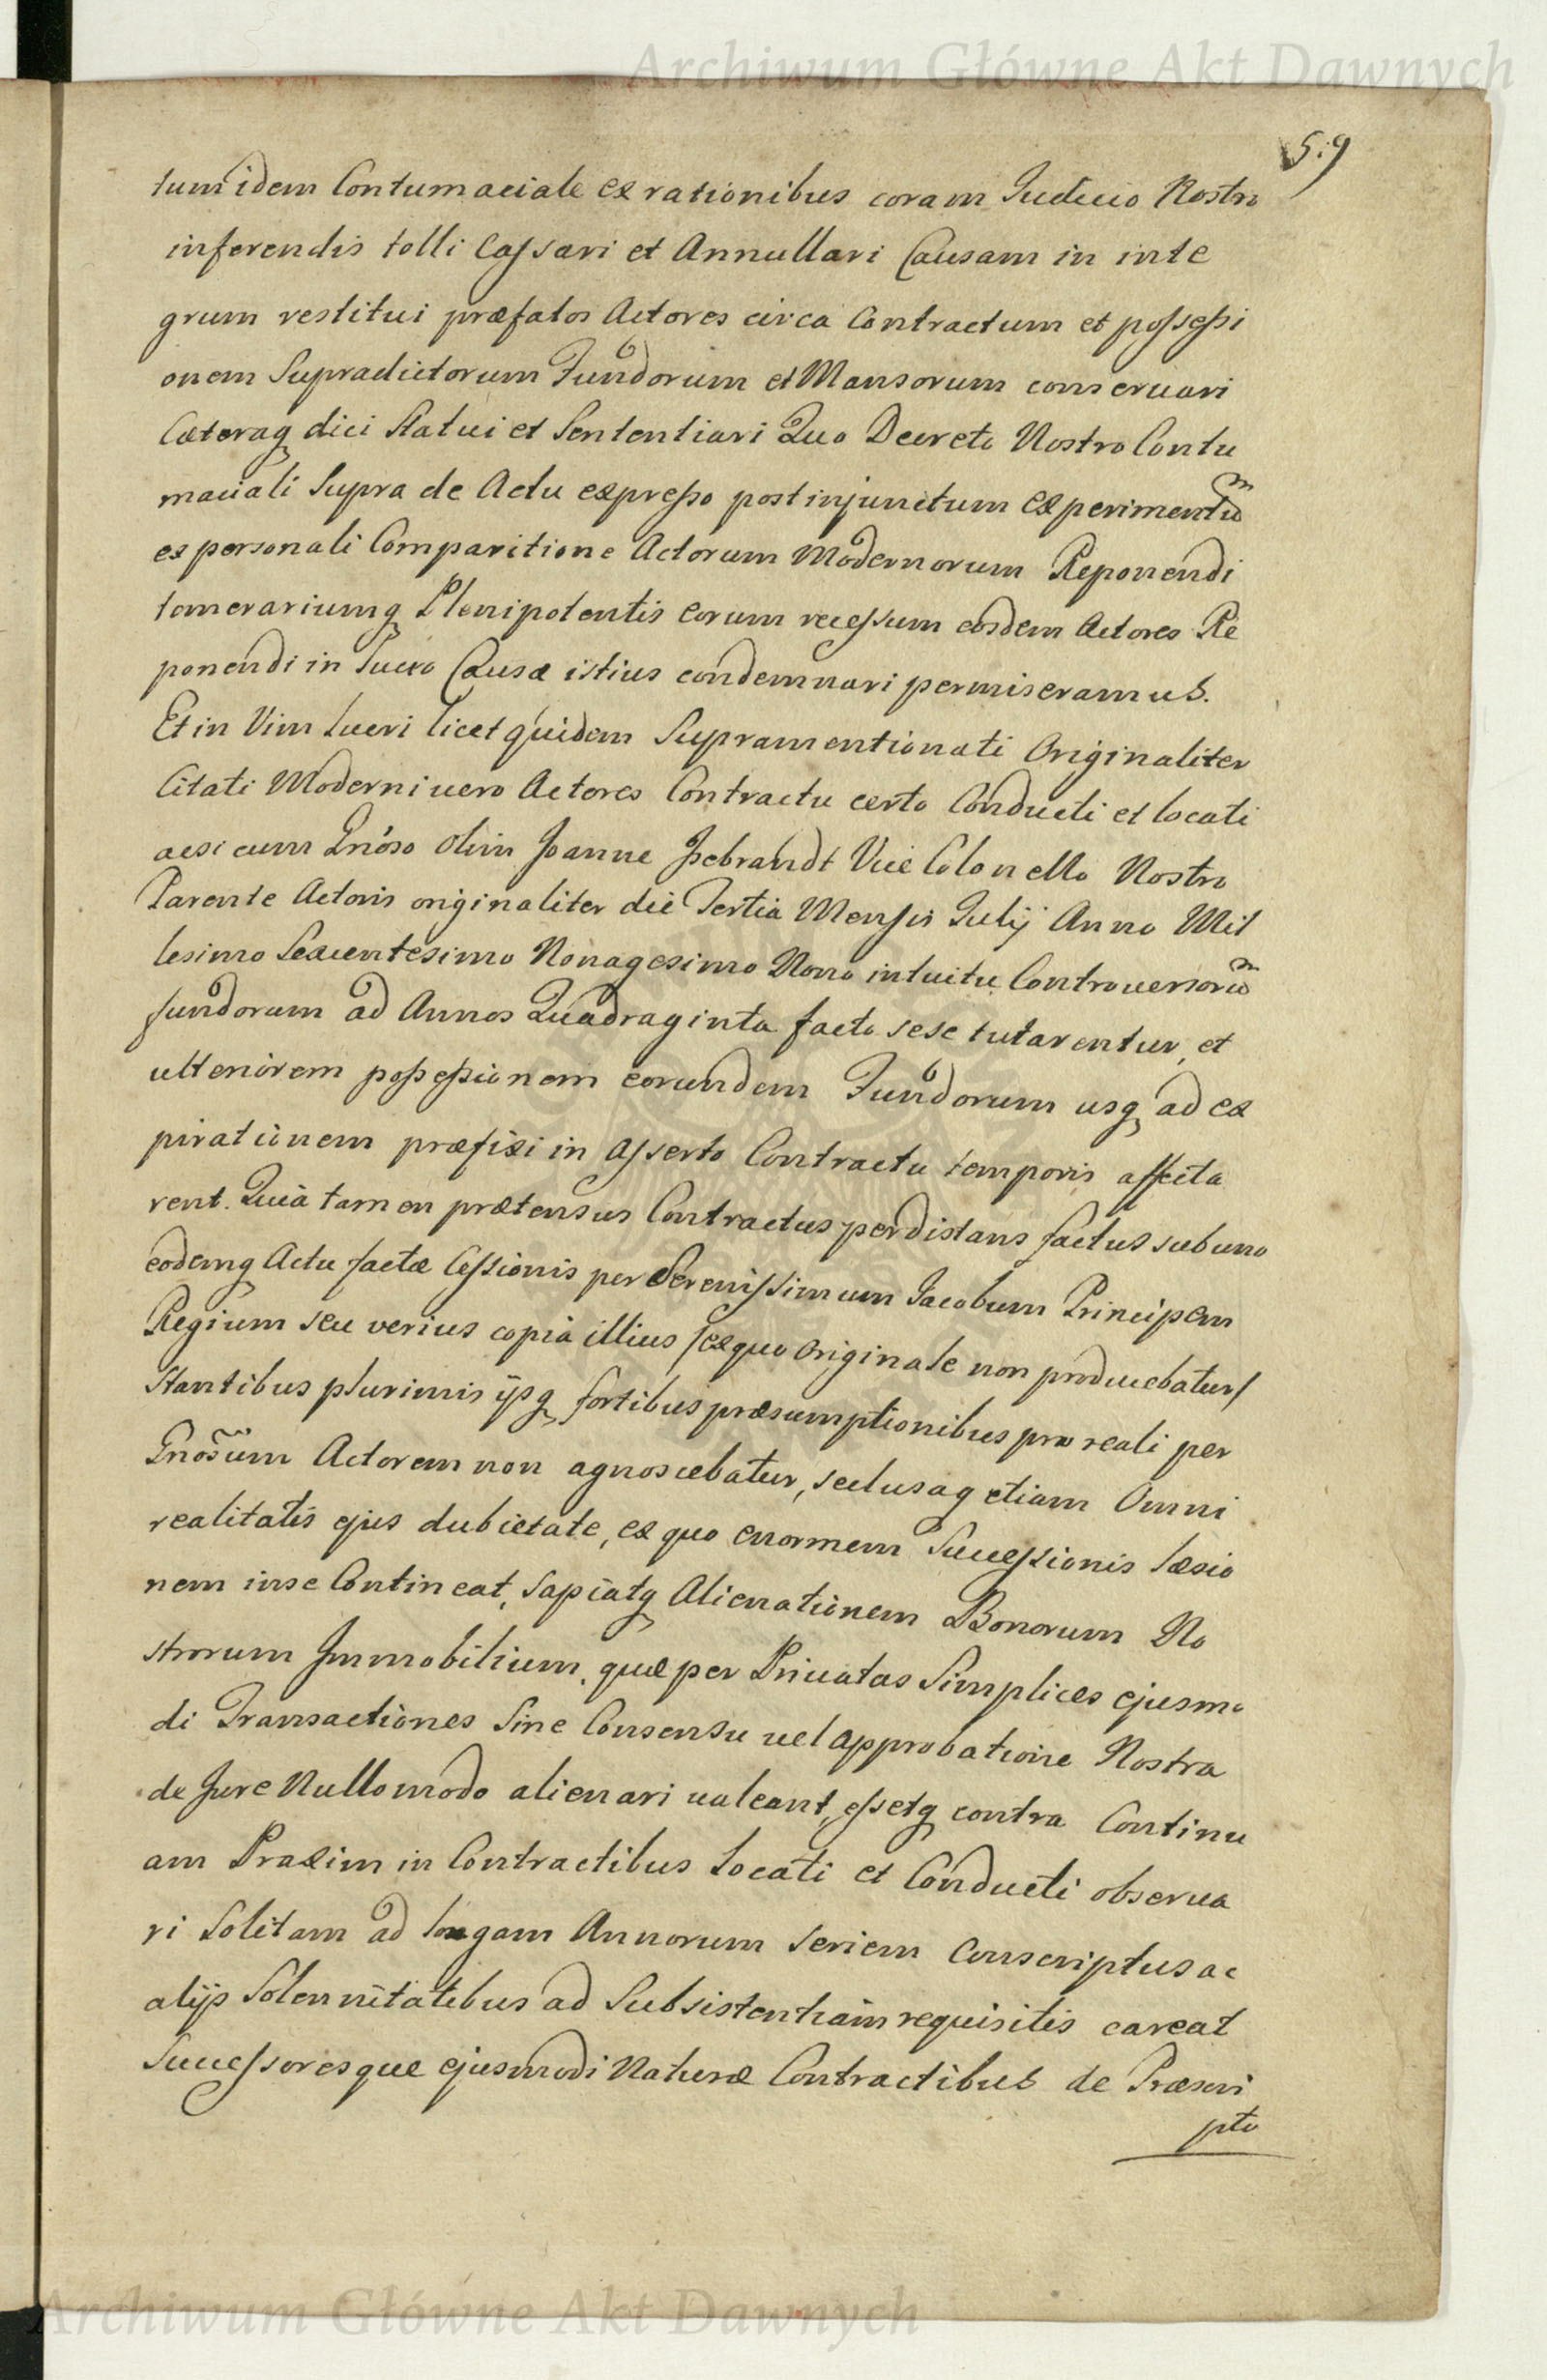 Archiwum Główne Akt Dawnych
519
tum idem Contumaciale ex rationibus coram Judicio Nostro
inferendis tolli Cassari et Annullari Causam in inte
grum restitui præfatos Actores circa Contractum et possessi
onem Supradictorum Fundorum et Mansorum conservari
Cæteraq dici Statui et Sententiari Quo Decreto Nostro Contu
maciali Supra de Actu expresso post injunctum Experimentũ
ex personali Comparitione Actorum Modernorum Reponendi
temerariumq Plenipotentis eorum recessum eosdem Actores Re
ponendi in Lucro Causæ istius condemnari permiseramus.
Et in Vim Lucri licet quidem Supramentionati Originaliter
Citati Moderni vero Actores Contractu certo Conducti et locati
acsi cum Gnoso olim Joanne Isebrandt Vice Colonello Nostro
Parente Actoris originaliter die Tertia Mensis Julij Anno Mil
lesimo Sexcentesimo Nonagesimo Nono intuitu Controversorũ
fundorum ad Annos Quadraginta facto sese tutarentur, et
ulteriorem possessionem eorundem Fundorum usq ad ex
pirationem præfixi in asserto Contractu temporis affecta
rent. Quia tamen prætensus Contractus per distans factus sub uno
eodemq Actu factæ Cessionis per Serenissimum Jacobum Principem
Regium seu verius copia illius /ex quo Originale non producebatur/
Stantibus plurimis ijsq fortibus præsumptionibus pro reali per
Gnosum Actorem non agnoscebatur, seclusaq etiam Omni
realitatis ejus dubietate, ex quo enormem Successionis læsio
nem in se Contineat, sapiatq Alienationem Bonorum No
strorum Immobilium, quæ per Privatas Simplices ejusmo
di Transactiones Sine Consensu vel approbatione Nostra
de Jure Nullo modo alienari valeant, essetq contra Continu
am Praxim in Contractibus Locati et Conducti observa
ri Solitam ad longam Annorum seriem Conscriptus ac
alijs Solennitatibus ad Subsistentiam requisitis careat
Successoresque ejusmodi Naturæ Contractibus de Præscri
pto
Archiwum Główne Akt Dawnych